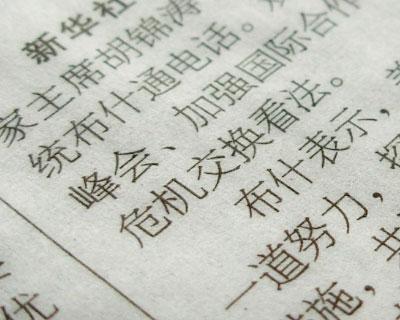 新华社
家主席胡锦涛
统布什通电话。
峰会、加强国际合作
危机交换看法。
布什表示，
一道努力，
施，共
优